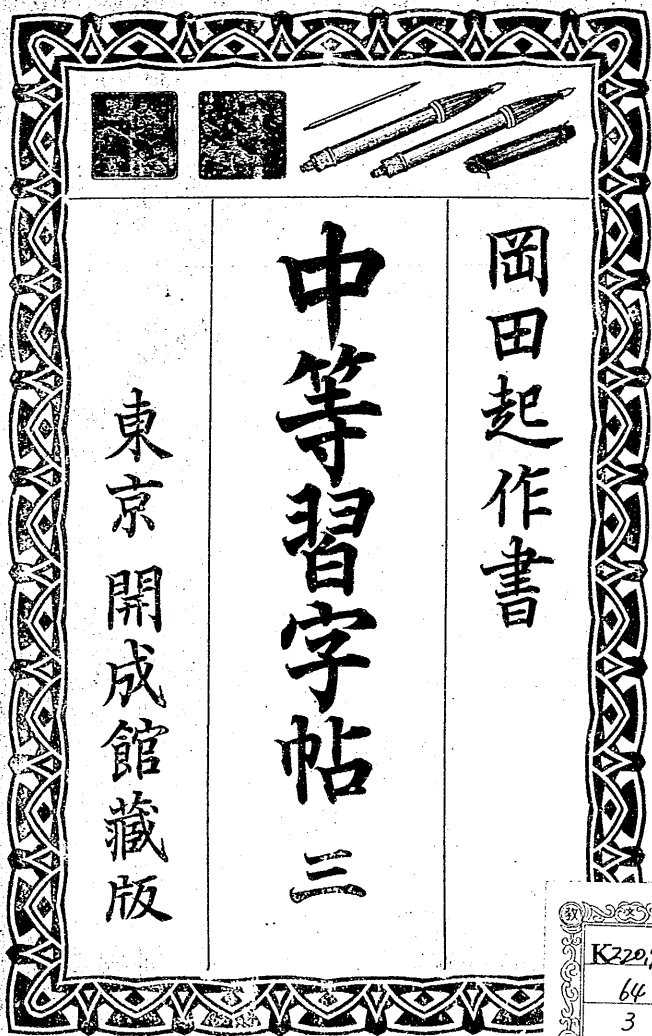 岡田起作書
中等習字帖 三
東京 開成館藏版
教 文
K220.
64
3